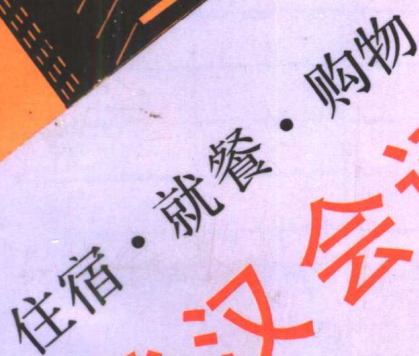 住宿·就餐·购物
汉会